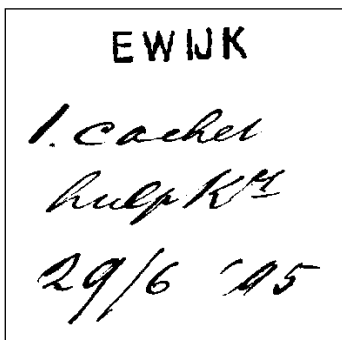 EWIJK
1. cachet
hulpKr
29/6 '95